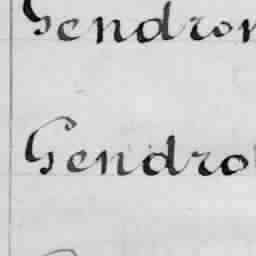 Gendron
Gendro